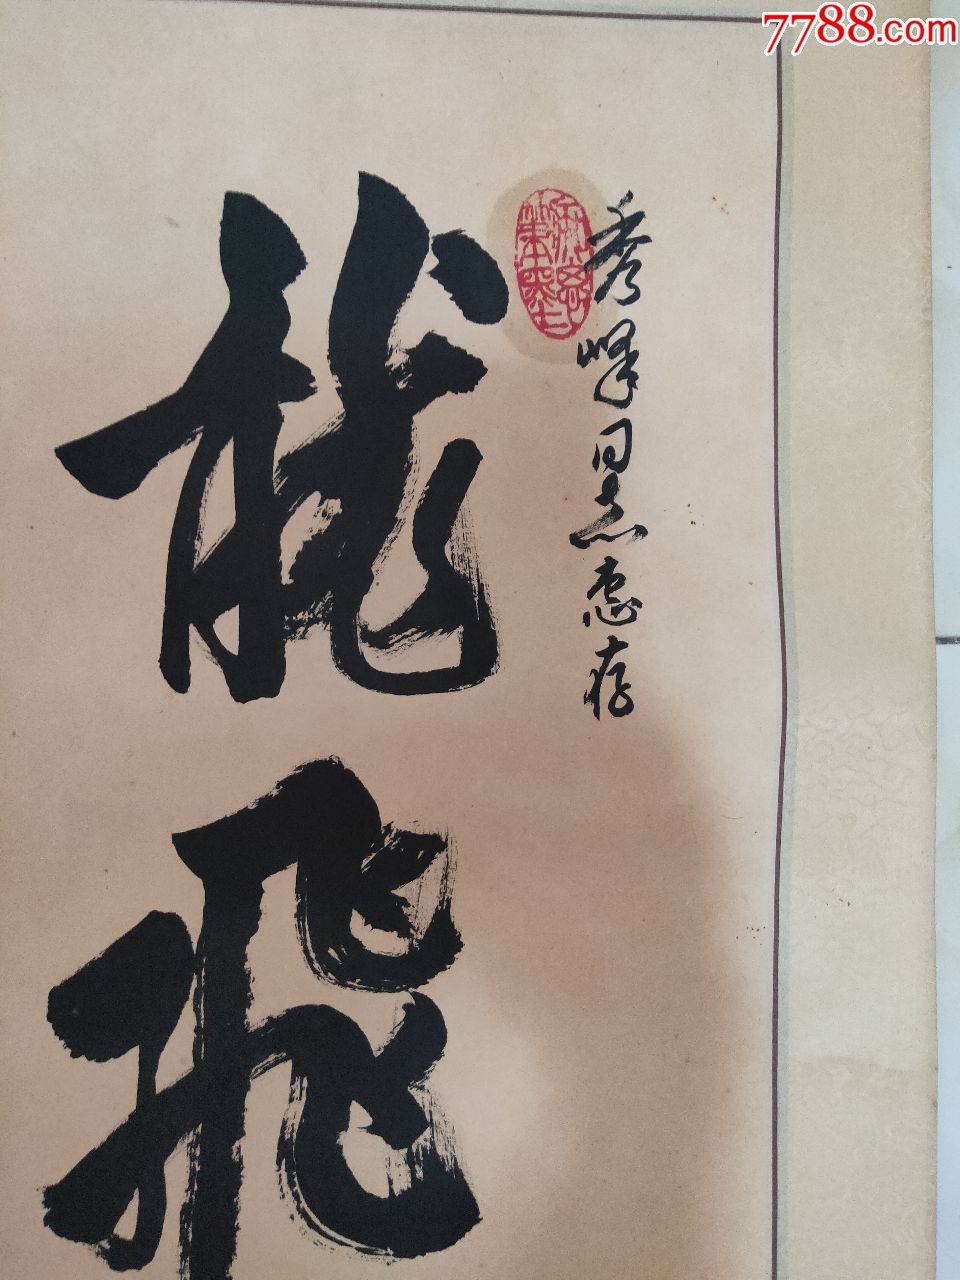 7788.com
秀峰同志惠存
龙飞